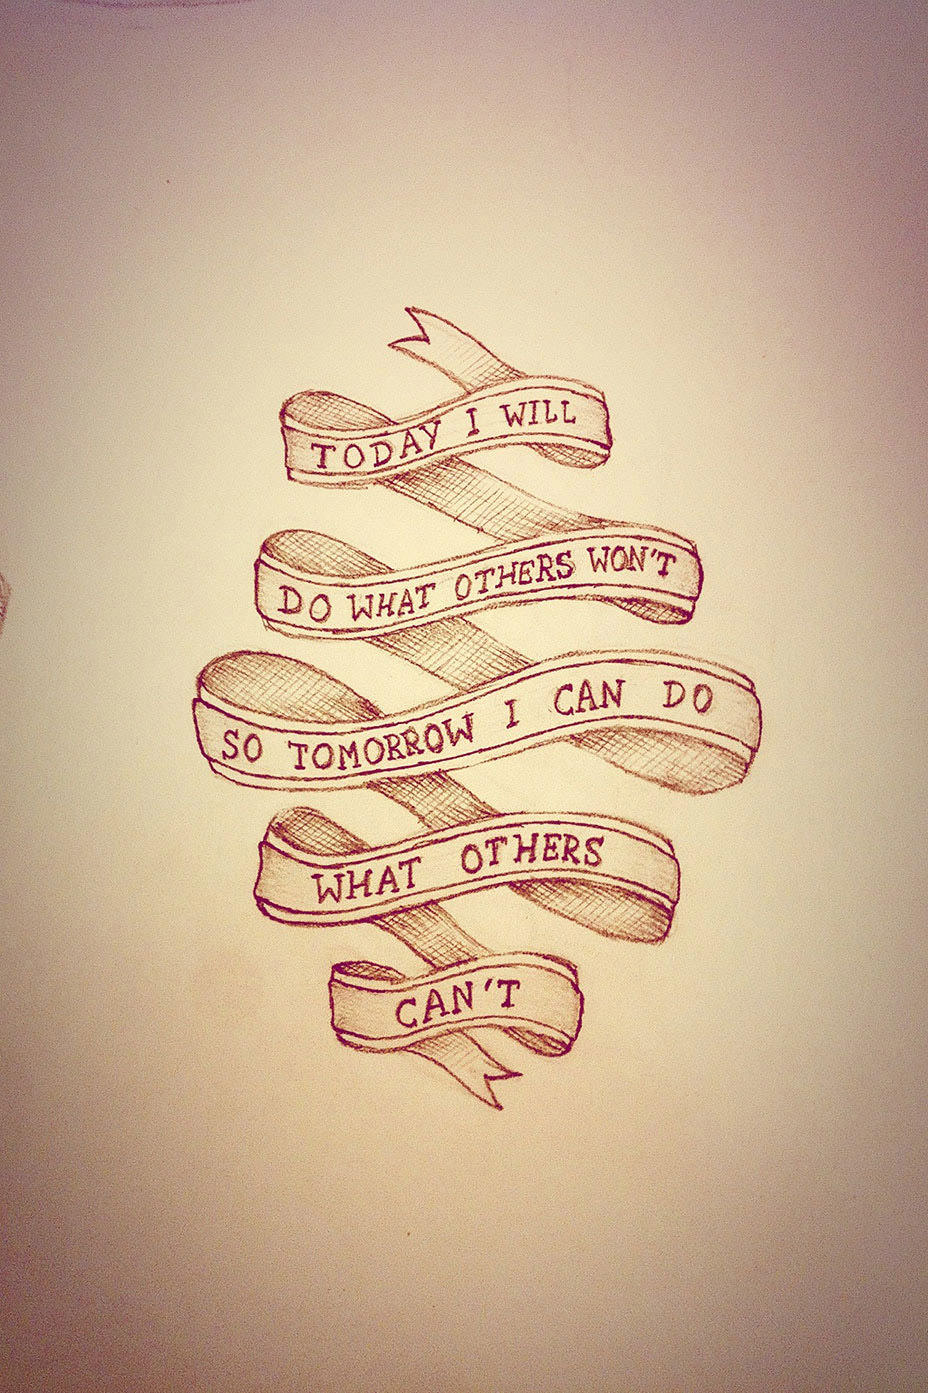 TODAY I WILL
DO WHAT OTHERS WON'T
SO TOMORROW I CAN DO
WHAT OTHERS
CAN'T